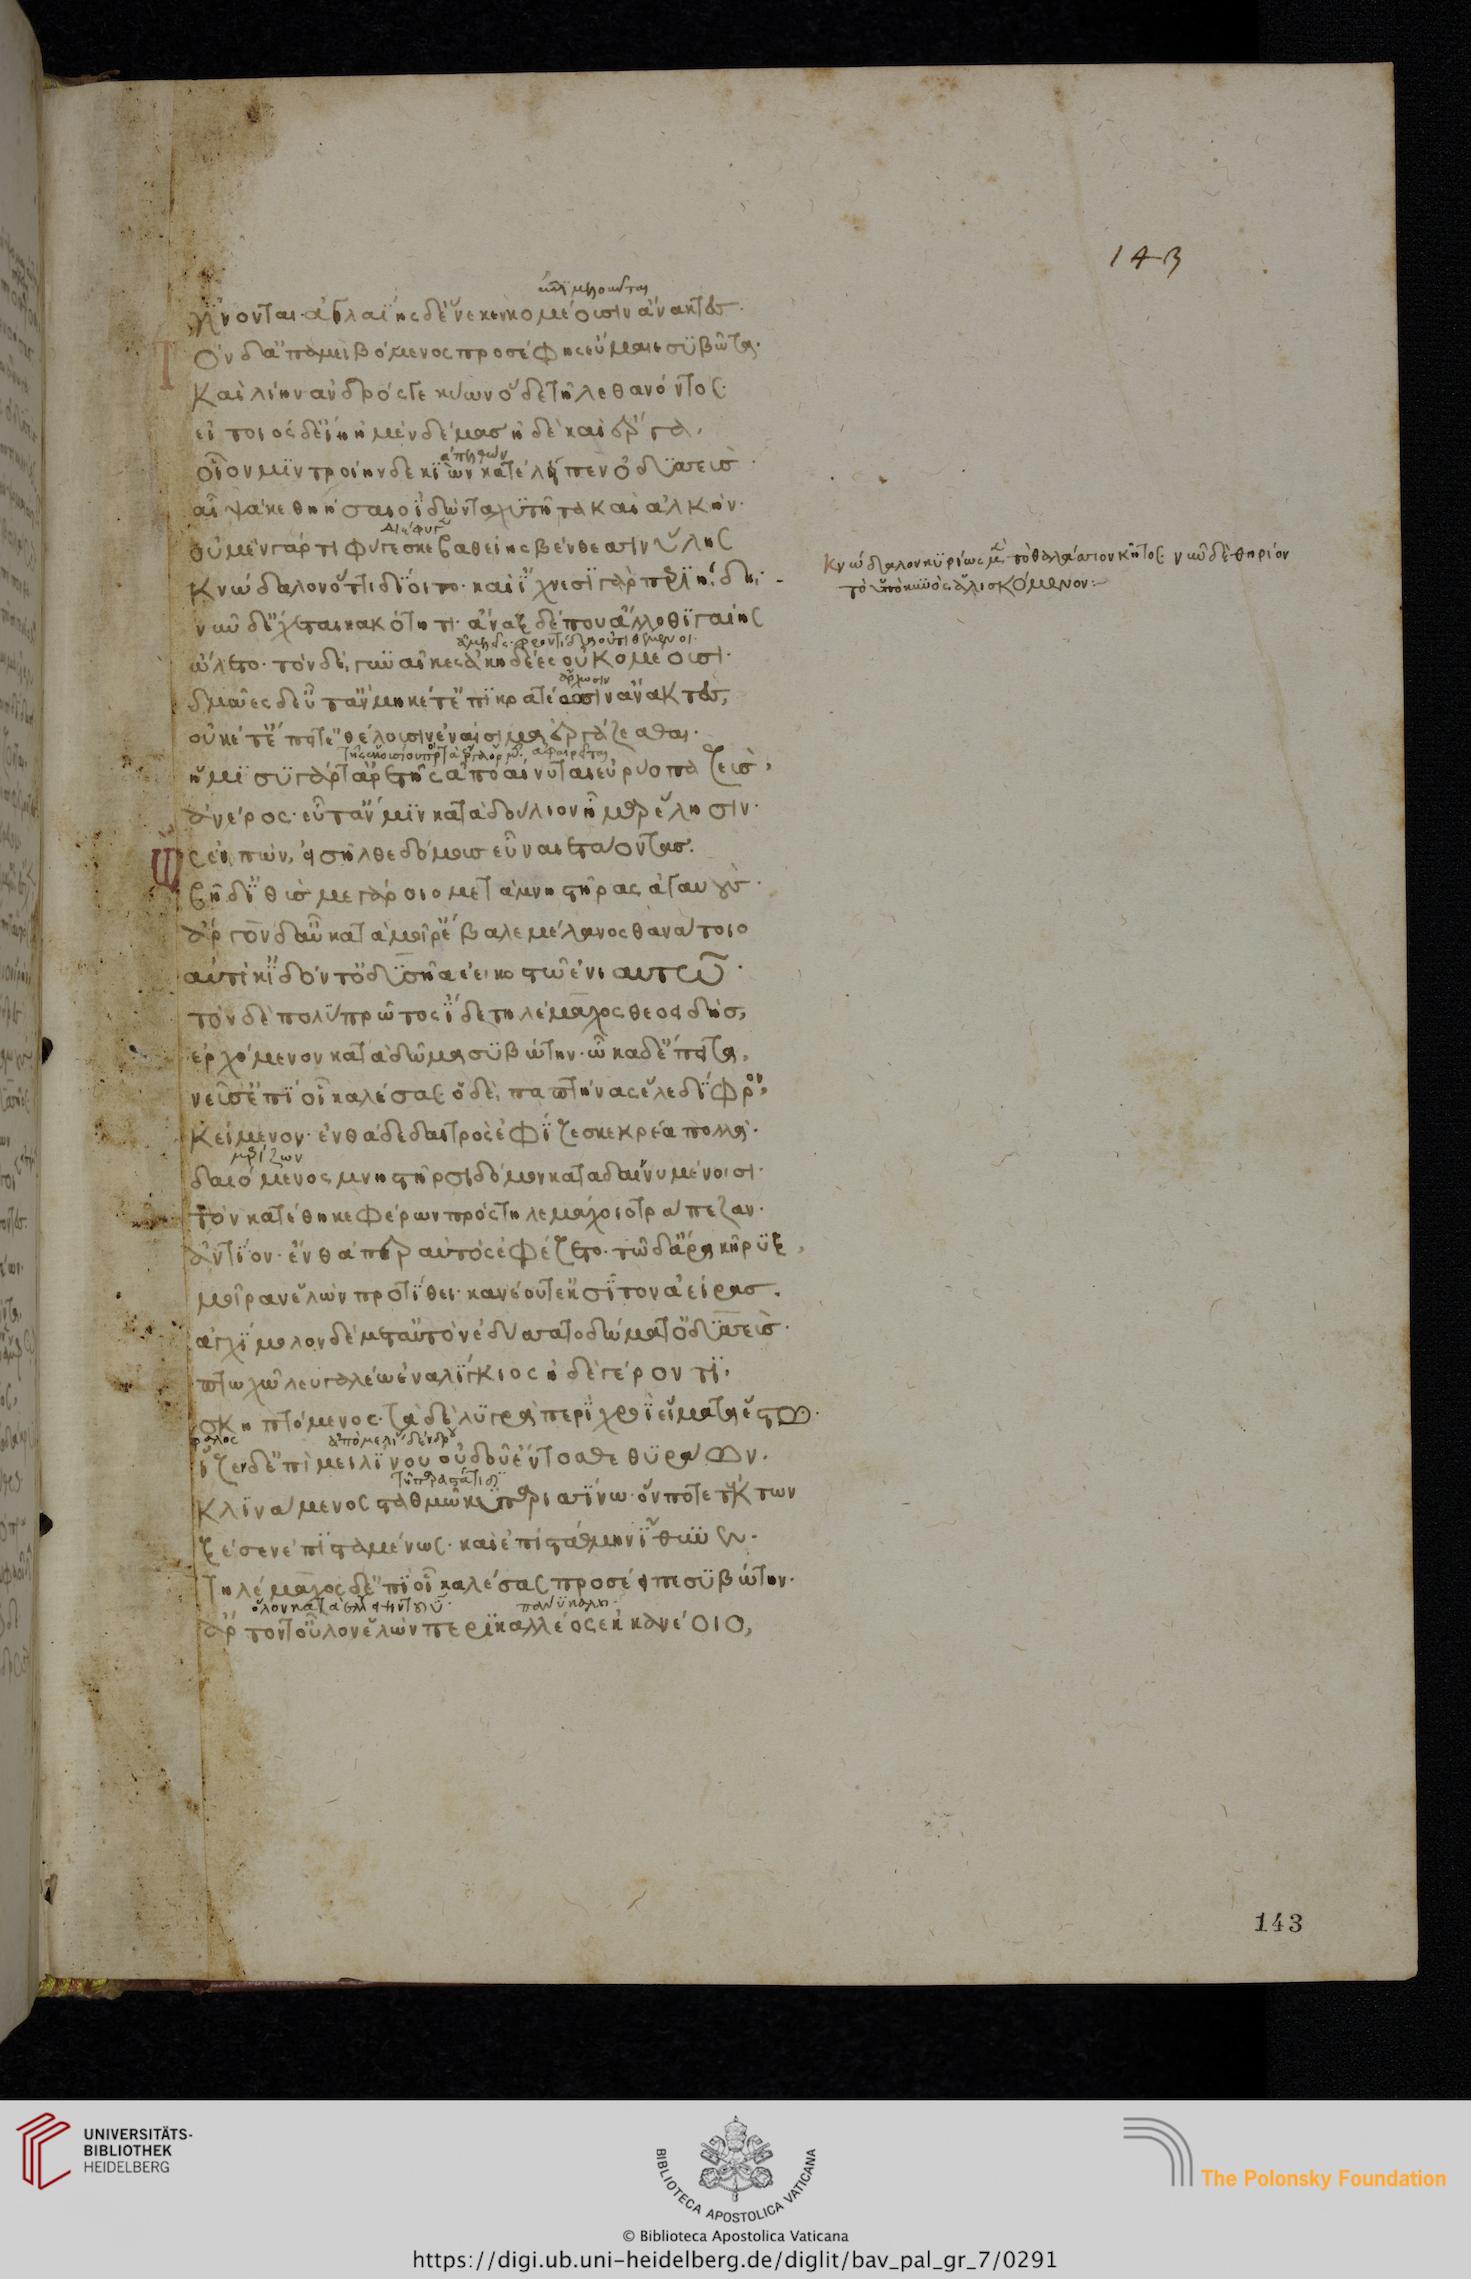 143
ἐπιμελοῦνται
γίνονται· ἀγλαΐης δ' ἕνεκεν κομέουσιν ἄνακτες·
Τὸν δ' ἀπαμειβόμενος προσέφης εὔμαιε συβῶτα·
Καὶ λίην ἀνδρός γε κύων ὅδε τῆλε θανόντος·
εἰ τοιόσδ' εἴη ἠμὲν δέμας ἠδὲ καὶ ἔργα,
ἀπελθών
οἷόν μιν τροίηνδε κιὼν κατέλειπεν ὀδυσσεύς·
αἶψά κε θηήσαιο ἰδὼν ταχυτῆτα καὶ ἀλκήν·
διέφυγε
οὐ μὲν γάρ τι φύγεσκε βαθείης βένθεσιν ὕλης
Κνώδαλον ὅττι δίοιτο· καὶ ἴχνεσι γὰρ περιῄδη·
Κνώδαλον κυρίως μὲν τὸ θαλάσσιον κῆτος· νῦν δὲ θηρίον
τὸ ὑπὸ κυνὸς ἁλισκόμενον:-
νῦν δ' ἔχεται κακότητι· ἄναξ δέ που ἄλλοθι γαίης
ἀμελεῖς· φροντίδας οὐ τιθέμενοι
ὤλετο· τὸν δὲ γυναῖκες ἀκηδέες οὐ κομέουσι·
ἄρχωσιν
δμῶες δ' εὖτ' ἂν μηκέτ' ἐπικρατέωσιν ἄνακτες,
οὐκέτ' ἔπειτ' ἐθέλουσιν ἐναίσιμα ἐργάζεσθαι·
ἀφαιρεῖται
ἥμισυ γάρ τ' ἀρετῆς ἀποαίνυται εὐρύοπα ζεὺς,
ἀνέρος· εὖτ' ἄν μιν κατὰ δούλιον ἦμαρ ἕλησιν·
Ὣς εἰπών, εἰσῆλθε δόμους εὖ ναιετάοντας·
βῆ δ' ἰθὺς μεγάροιο μετὰ μνηστῆρας ἀγαυούς·
ἄργον δ' αὖ κατὰ μοῖρ' ἔβαλε μέλανος θανάτοιο
αὐτίκ' ἰδόντ' ὀδυσῆα ἐεικοστῷ ἐνιαυτῷ·
τὸν δὲ πολὺ πρῶτος ἴδε τηλέμαχος θεοειδής,
ἐρχόμενον κατὰ δῶμα συβώτην· ὦκα δ' ἔπειτα,
νεῦσ' ἐπὶ οἷ καλέσας· ὁ δὲ, παπτήνας ἕλε δίφρον,
Κείμενον· ἔνθα δὲ δαιτρὸς ἐφίζεσκε κρέα πολλά·
μερίζων
δαιόμενος μνηστῆρσι δόμον κάτα δαινυμένοισι·
τὸν κατέθηκε φέρων πρὸς τηλεμάχοιο τράπεζαν·
ἀντίον· ἔνθά περ αὐτὸς ἐφέζετο· τῷ δ' ἄρα κῆρυξ,
μοῖραν ἑλὼν προτίθει· κανέου τ' ἐκ σῖτον ἀείρας.
ἀγχίμολον δὲ μετ' αὐτὸν ἐδύσατο δώματ' ὀδυσσεύς·
πτωχῷ λευγαλέῳ ἐναλίγκιος ἠδὲ γέροντι·
σκηπτόμενος· τὰ δὲ λυγρὰ περὶ χροῒ εἵματα ἕστο·
ἀπὸ μελίου δένδρου
ἷζε δ' ἐπὶ μειλίνου οὐδοῦ ἔντοσθε θυράων·
τῇ παραστάτιδι
Κλινάμενος σταθμῷ κυπαρισσίνῳ· ὅν ποτε τέκτων
ξέσεν ἐπισταμένως· καὶ ἐπὶ στάθμην ἴθυνεν·
τηλέμαχος δ' ἐπὶ οἷ καλέσας προσέειπε συβώτην·
πάνυ καλοῦ
ἄρτον τ' οὖλον ἑλὼν περικαλλέος ἐκ κανέοιο,
143
UNIVERSITÄTS-
BIBLIOTHEK
HEIDELBERG
BIBLIOTECA APOSTOLICA VATICANA
The Polonsky Foundation
© Biblioteca Apostolica Vaticana
https://digi.ub.uni-heidelberg.de/diglit/bav_pal_gr_7/0291